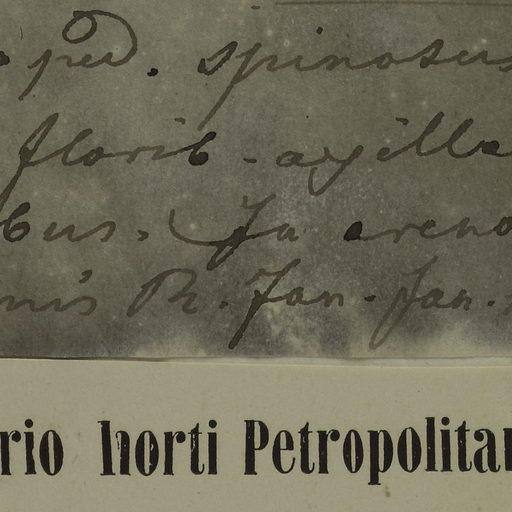 ped. spinosus
florib. axilla
bus. In areno
nis R. Jan. Jan.
rio horti Petropolitan